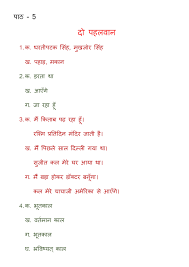 पाठ - 5
दो पहलवान
1.क. धरतीपटक सिंह, मुखजोर सिंह
ख. पहाड़, मकान
2.क. हरता था
ख. आएँगे
ग. जा रहा हूँ
3.क. मैं किताब पढ़ रहा हूँ।
रश्मि प्रतिदिन मंदिर जाती है।
ख. मैं पिछले साल दिल्ली गया था।
सुजीत कल मेरे घर आया था।
ग. मैं बड़ा होकर डॉक्टर बनूँगा।
कल मेरे चाचाजी अमेरिका से आएँगे।
4.क. भूतकाल
ख. वर्तमान काल
ग. भूतकाल
घ. भविष्यत् काल